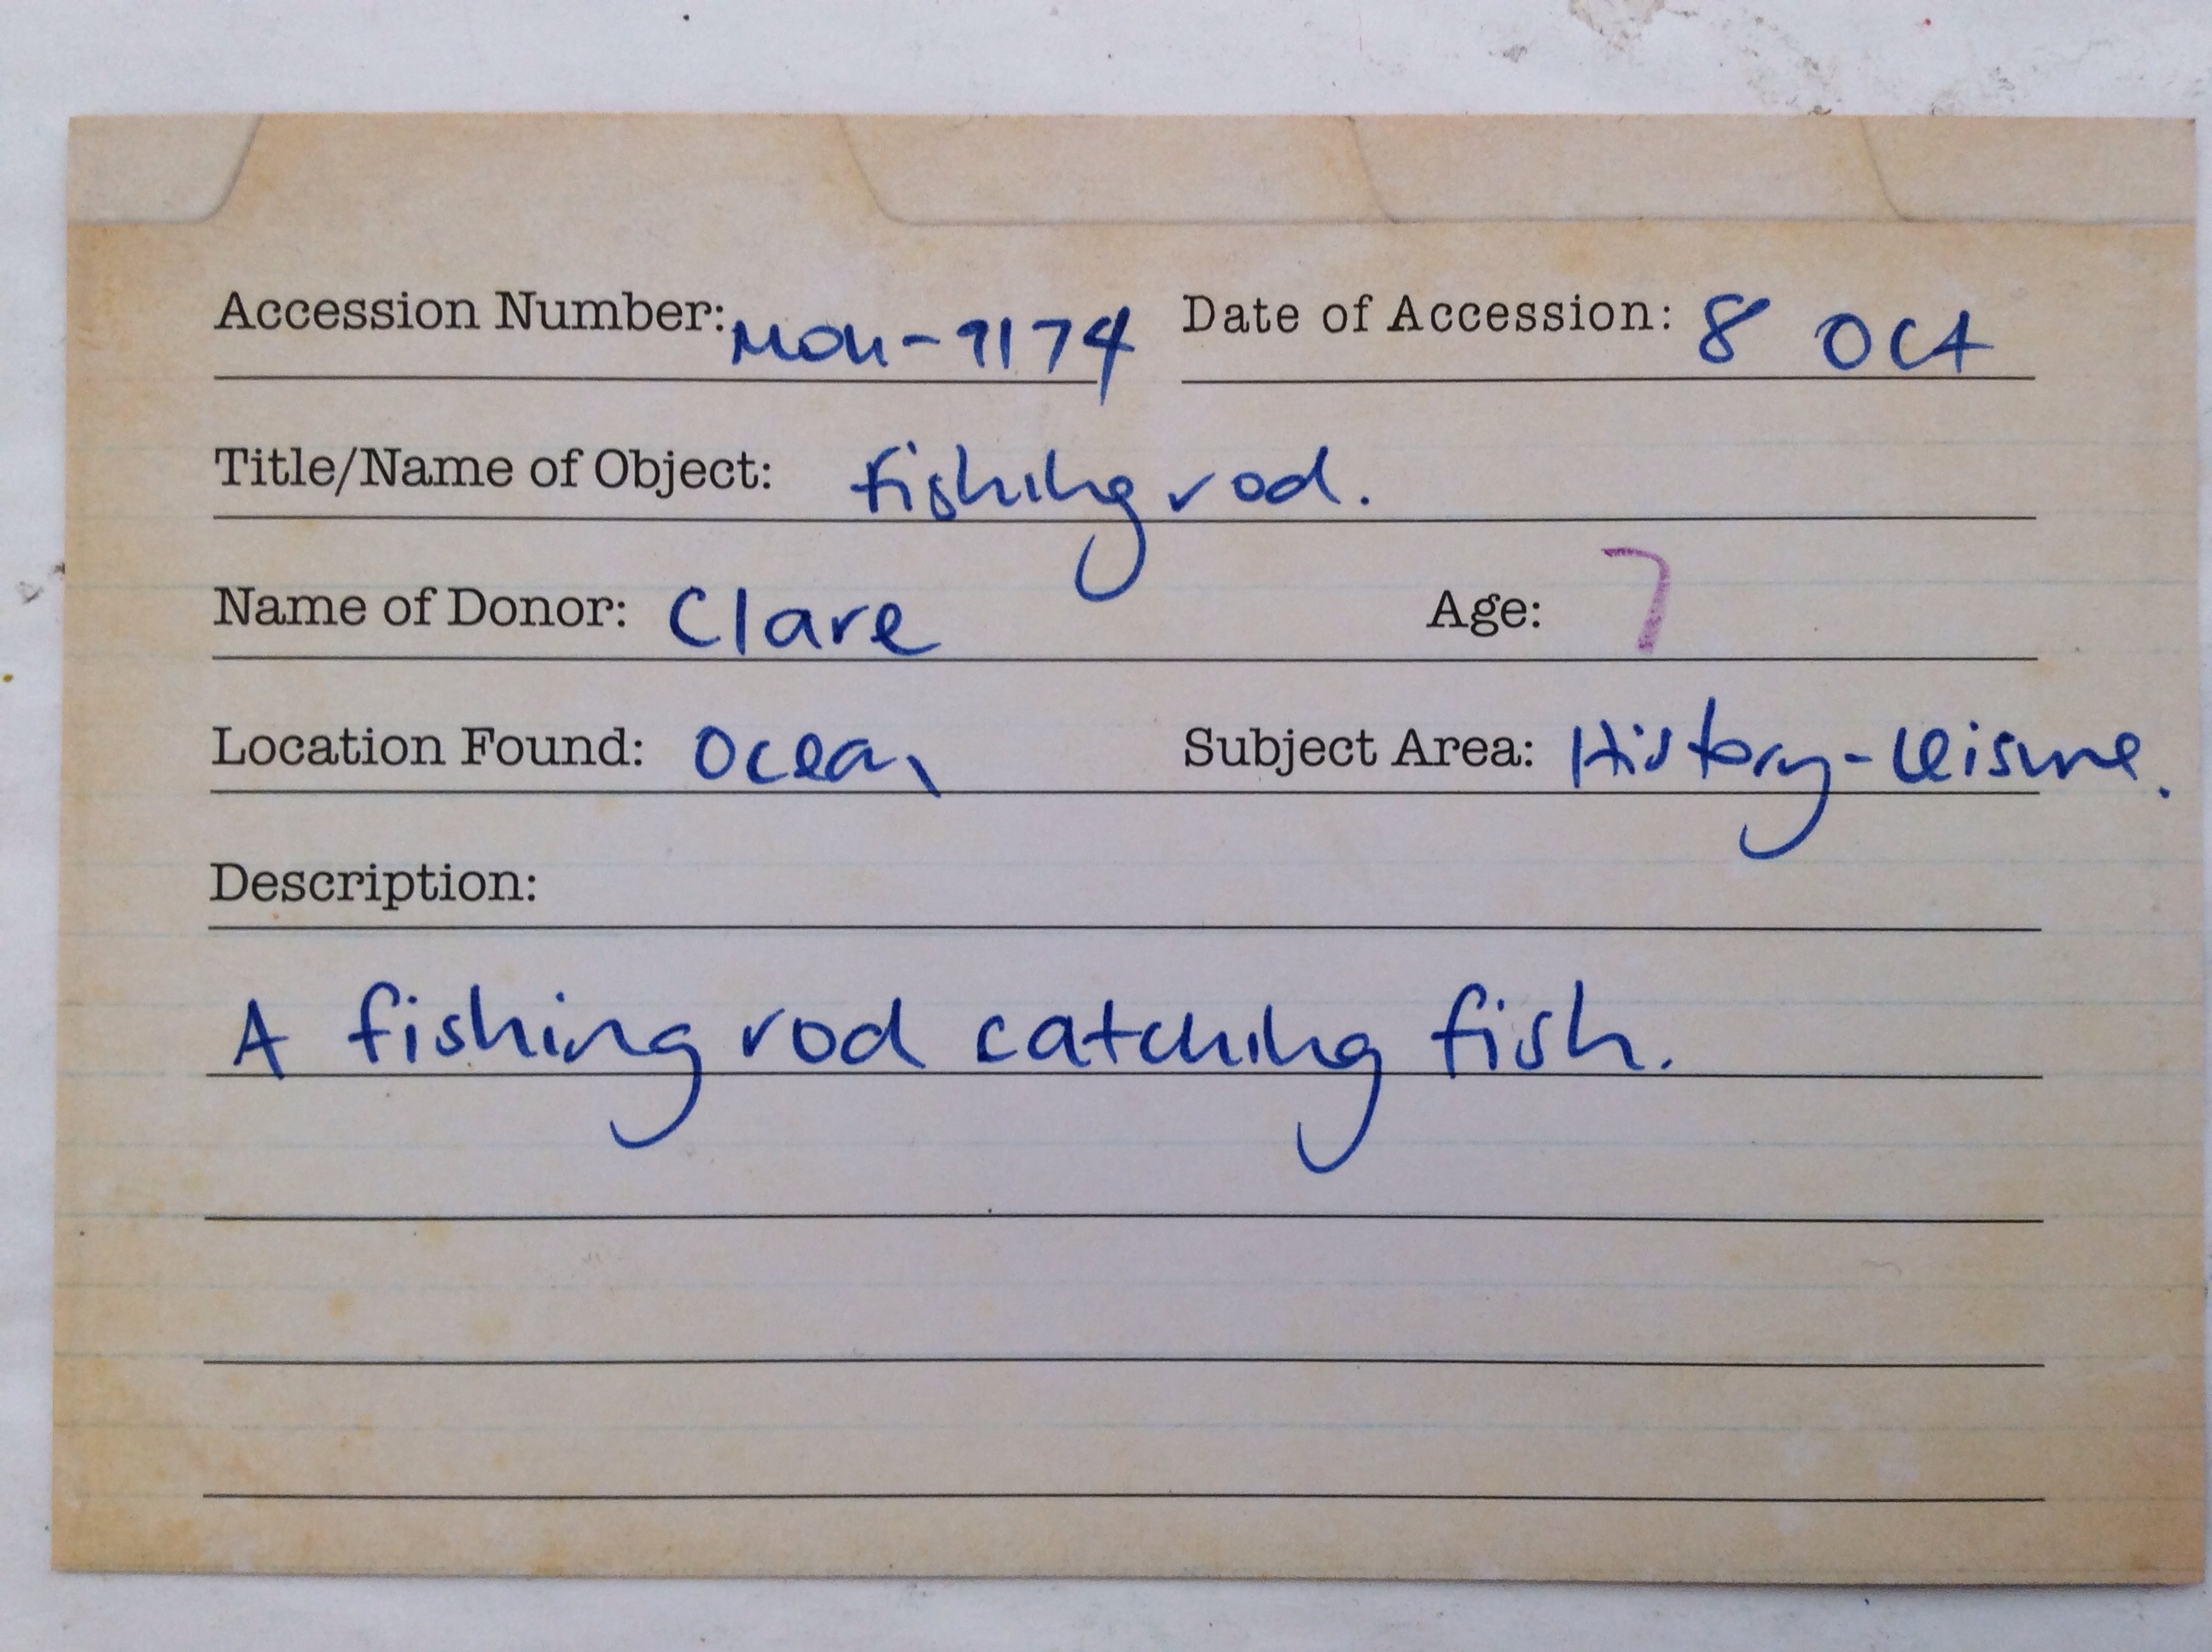 Accession Number: MOH-9174 Date of Accession: 8 Oct
Title/Name of Object: fishing rod.
Name of Donor: Clare Age: 7
Location Found: Ocean Subject Area: History-leisure.
Description:
A fishing rod catching fish.